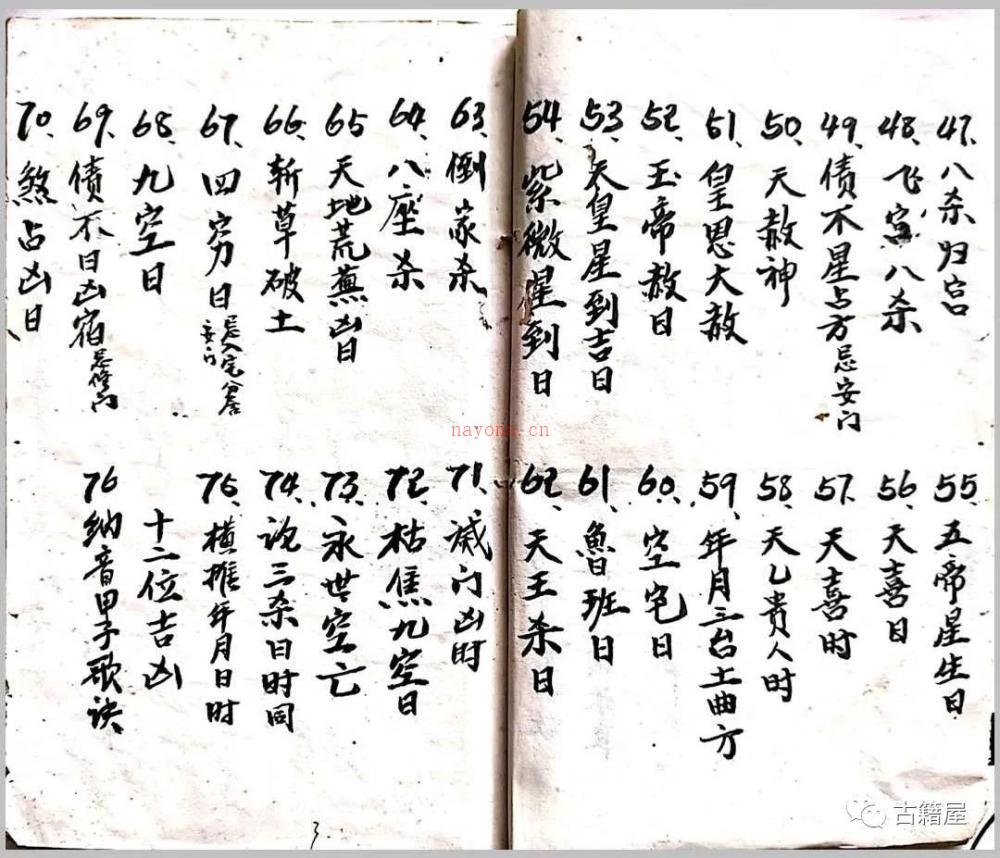 47、八杀归宫
48、飞宫八杀
49、债不星占方忌安门
50、天赦神
51、皇恩大赦
52、玉帝赦日
53、天皇星到吉日
54、紫微星到日
55、五帝星生日
56、天喜日
57、天喜时
58、天乙贵人时
59、年月三台土曲方
60、空宅日
61、鲁班日
62、天王杀日
63、倒家杀
64、八座杀
65、天地荒蕪凶日
66、斩草破土
67、四穷日忌入宅分居安门
68、九空日
69、债不日凶宿忌修门
70、煞占凶日
71、灭门凶时
72、枯焦九空日
73、永世空亡
74、论三杀日时同
75、横推年月日时
十二位吉凶
76、纳音甲子歌诀
3
nayona.cn
古籍屋